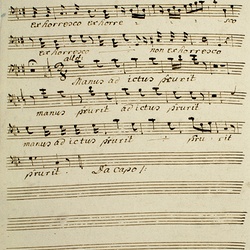 exhorresco exhorre sco
exhorresco non exhorresco
all:
Manus ad ictus prurit
manus prurit ad ictus prurit
manus ad ictus prurit pru rit
prurit. Da Capo